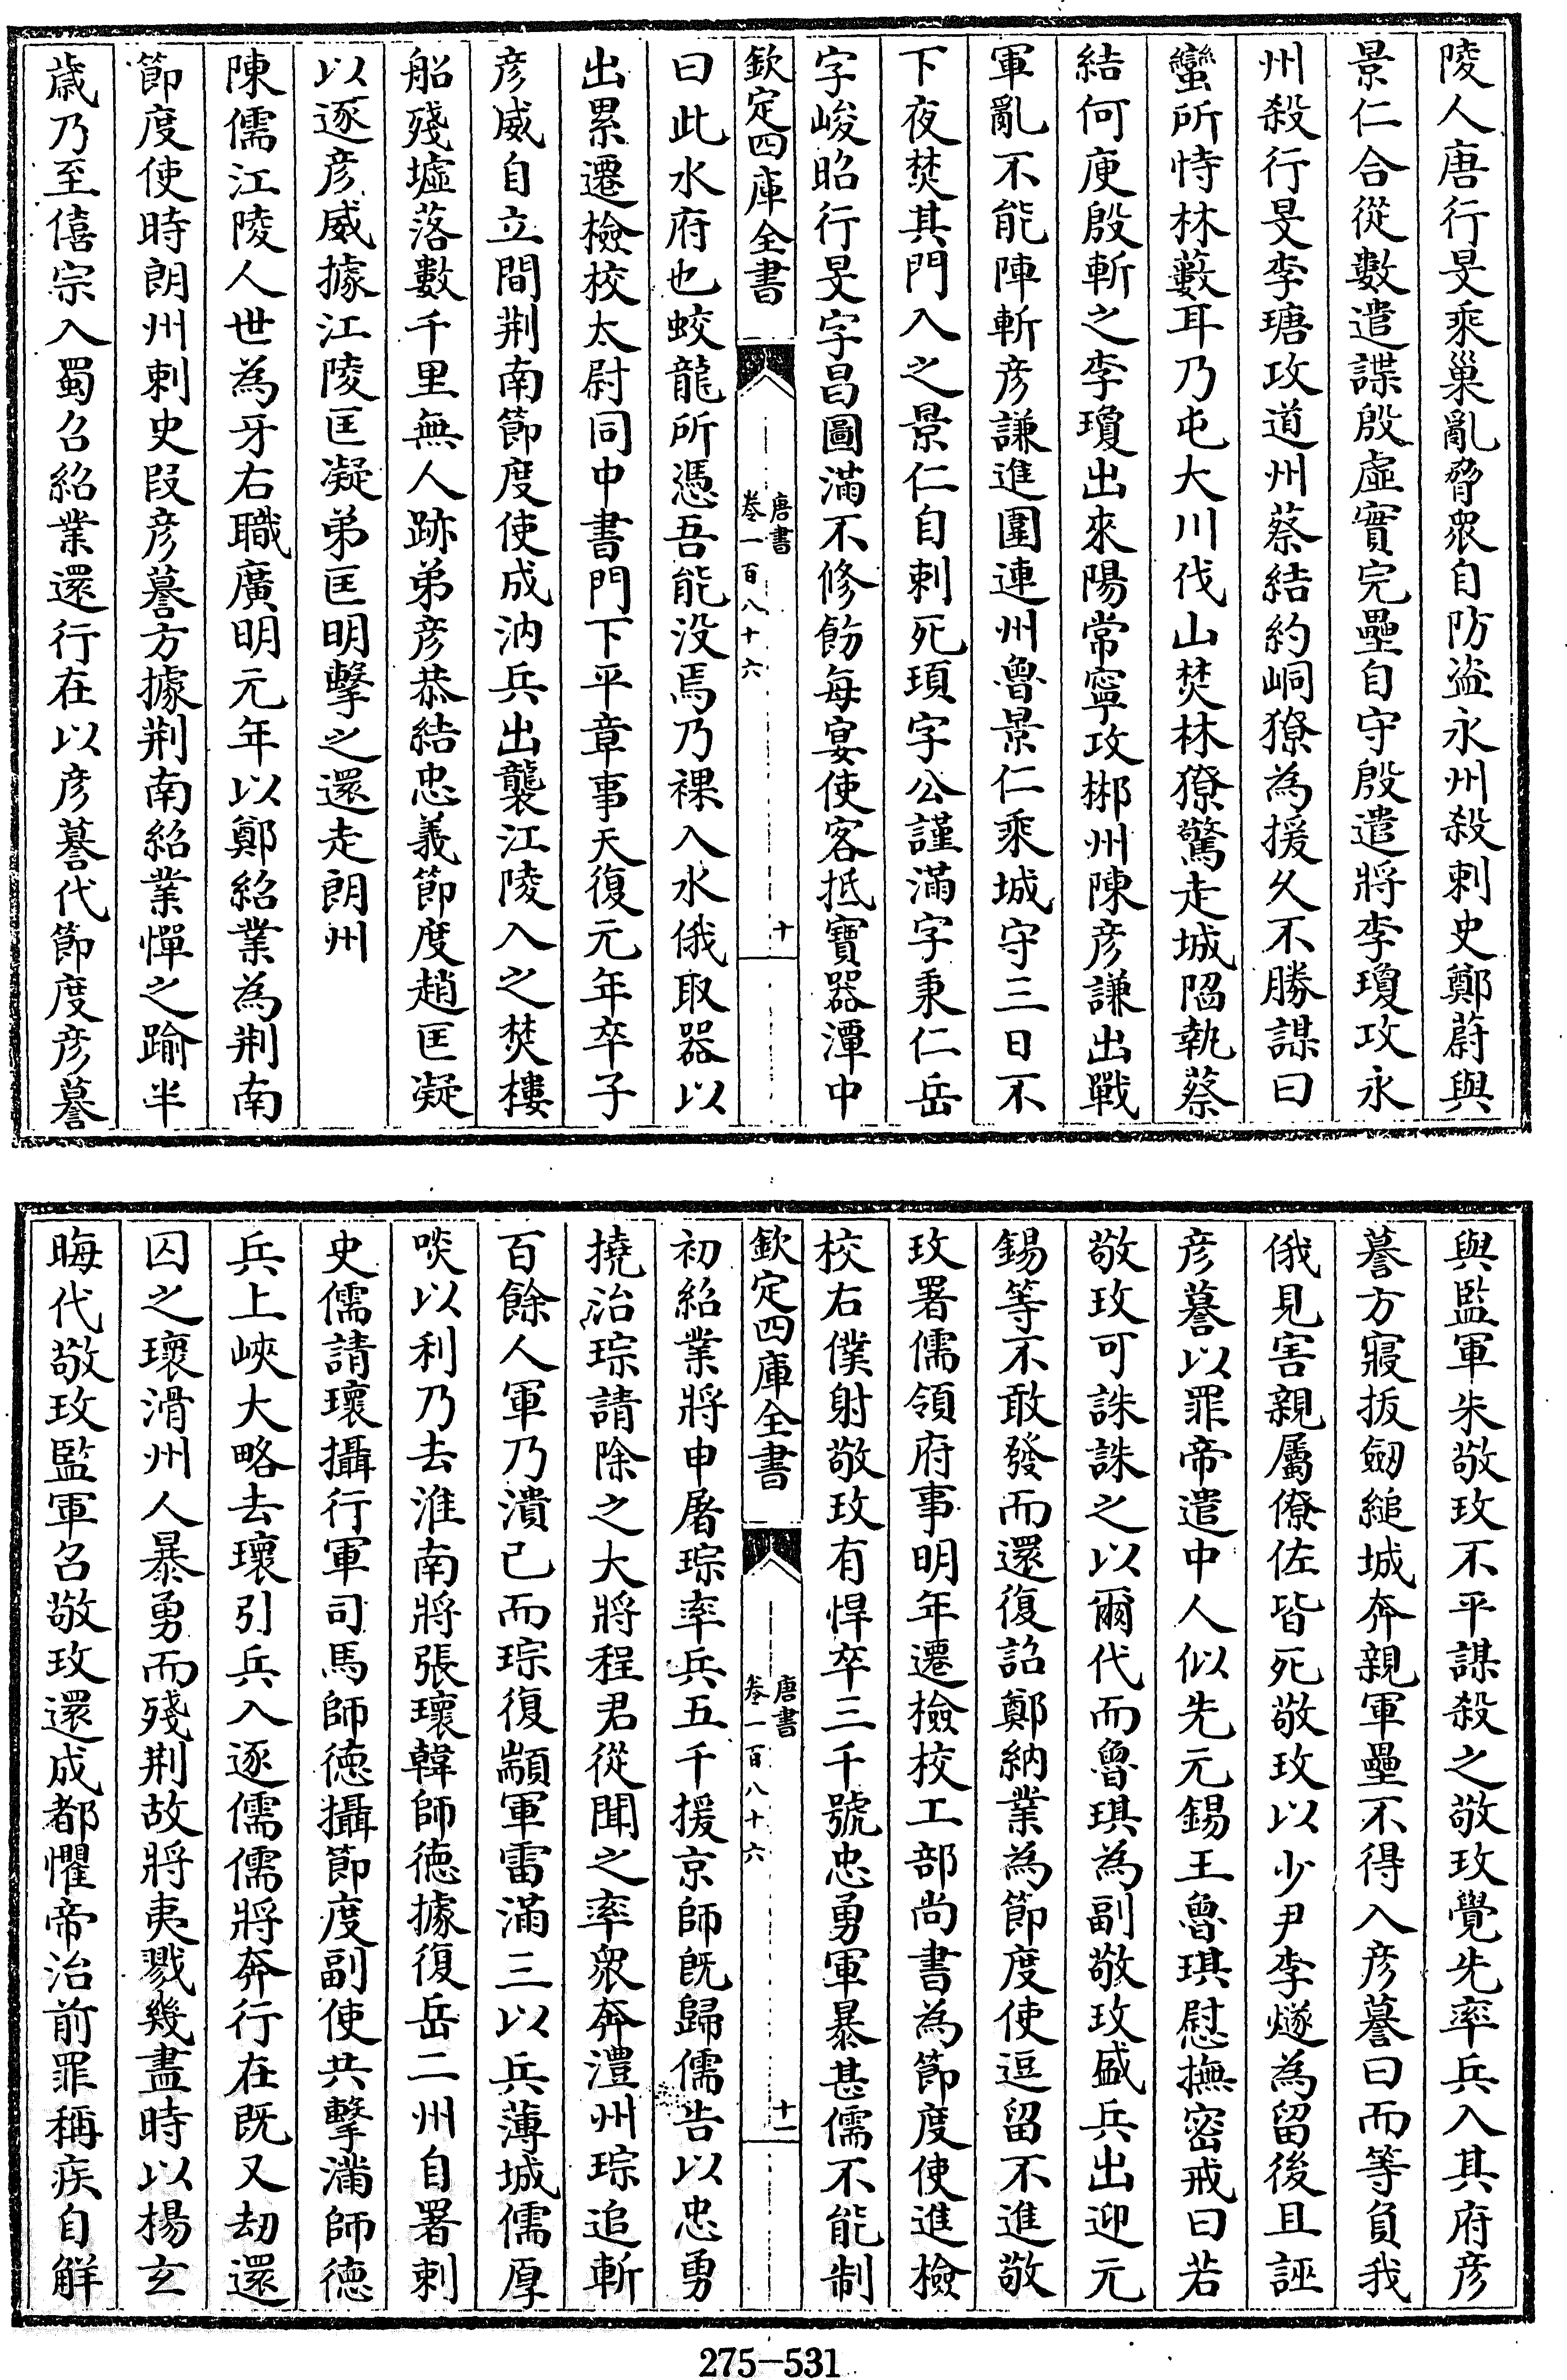 陵人唐行旻乘巢亂脅衆自防盜永州殺刺史鄭蔚與
景仁合從數遣諜殷虛實完壘自守殷遣將李瓊攻永
州殺行旻李瑭攻道州蔡結約峒獠為援久不勝謀曰
蠻所恃林藪耳乃屯大川伐山焚林獠驚走城陷執蔡
結何庾殷斬之李瓊出來陽常寧攻郴州陳彦謙出戰
軍亂不能陣斬彦謙進圍連州魯景仁乘城守三日不
下夜焚其門入之景仁自刺死頊字公謹滿字秉仁岳
字峻昭行旻字昌圖滿不修飭每宴使客抵寶器潭中
欽定四庫全書
唐書
卷一百八十六
十
曰此水府也蛟龍所憑吾能没焉乃裸入水俄取器以
出累遷檢校太尉同中書門下平章事天復元年卒子
彦威自立間荆南節度使成汭兵出襲江陵入之焚樓
船殘墟落數千里無人跡弟彦恭結忠義節度趙匡凝
以逐彦威據江陵匡凝弟匡明擊之還走朗州
陳儒江陵人世為牙右職廣明元年以鄭紹業為荆南
節度使時朗州刺史段彦謩方據荆南紹業憚之踰半
歳乃至僖宗入蜀召紹業還行在以彦謩代節度彦謩
與監軍朱敬玫不平謀殺之敬玫覺先率兵入其府彦
謩方寢拔劒縋城奔親軍壘不得入彦謩曰而等負我
俄見害親屬僚佐皆死敬玫以少尹李燧為留後且誣
彦謩以罪帝遣中人似先元錫王魯琪慰撫密戒曰若
敬玫可誅誅之以爾代而魯琪為副敬玫盛兵出迎元
錫等不敢發而還復詔鄭納業為節度使逗留不進敬
玫署儒領府事明年遷檢校工部尚書為節度使進檢
校右僕射敬玫有悍卒三千號忠勇軍暴甚儒不能制
欽定四庫全書
唐書
卷一百八十六
十一
初紹業將申屠琮率兵五千援京師既歸儒告以忠勇
撓治琮請除之大將程君從聞之率衆奔澧州琮追斬
百餘人軍乃潰已而琮復顓軍雷滿三以兵薄城儒厚
啖以利乃去淮南將張瓌韓師徳據復岳二州自署刺
史儒請瓌攝行軍司馬師徳攝節度副使共擊滿師徳
兵上峽大略去瓌引兵入逐儒儒將奔行在既又劫還
囚之瓌滑州人暴勇而殘荆故將夷戮幾盡時以楊玄
晦代敬玫監軍召敬玫還成都懼帝治前罪稱疾自解
275-531